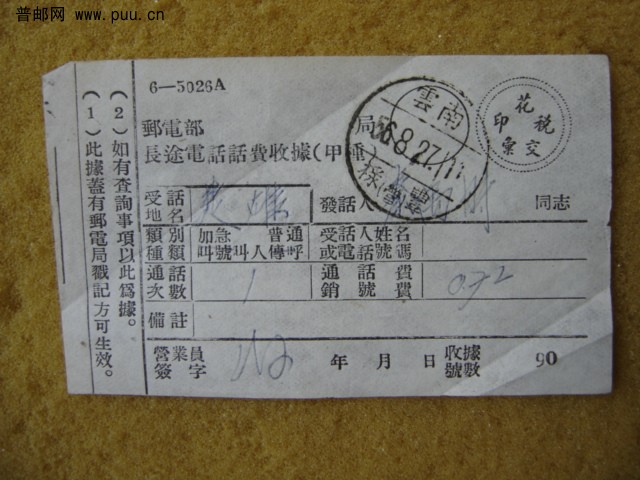 普邮网 www.puu.cn
6—5026A
郵電部 局
長途電話話費收據(甲種)
雲南
56.8.27.11
祿豐
印花稅
彙交
受話地名
發話人 同志
類別種類 加急 普通 叫號 叫人 傳呼
受話人姓名或電話號碼
通話次數 1
通話費銷號費 0.72
備註
營業員簽字 年 月 日 收據號數 90
(1)此據蓋有郵電局戳記方可生效。
(2)如有查詢事項以此爲據。